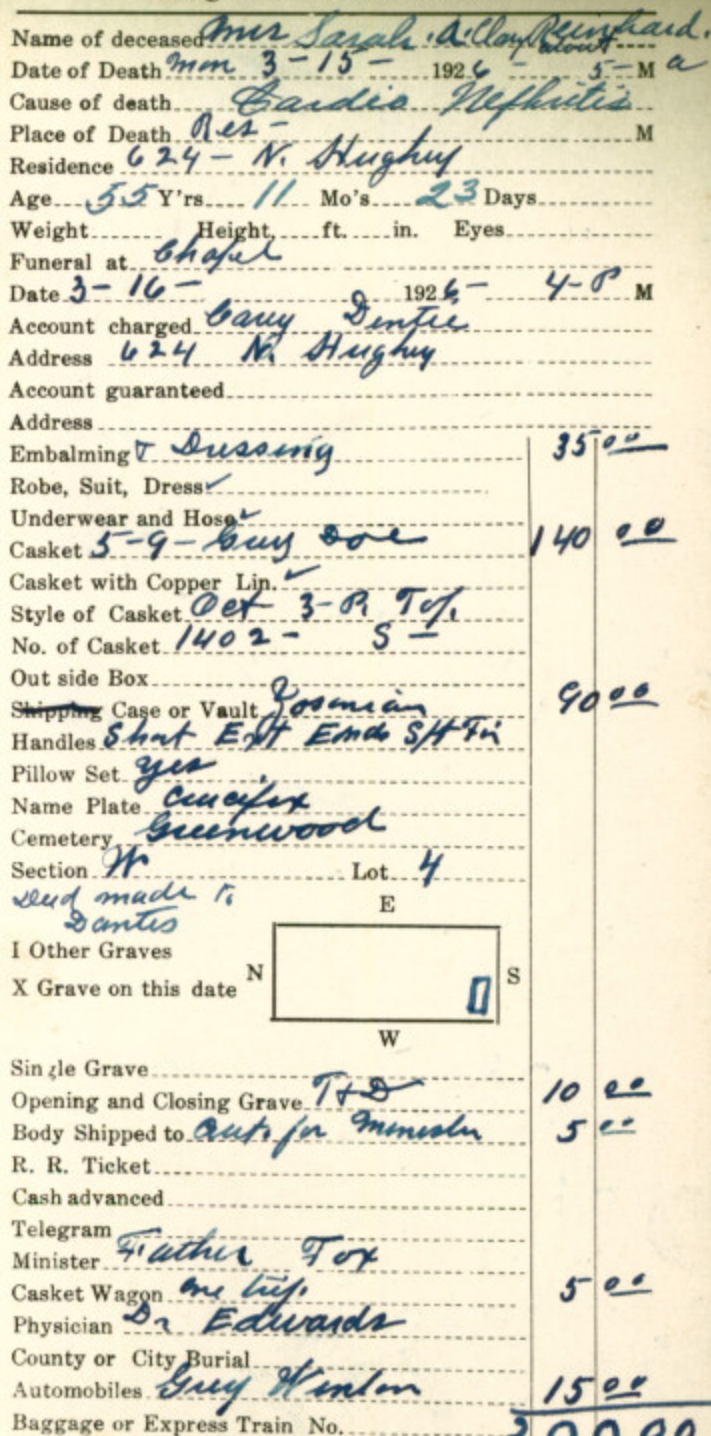 Name of deceased Mrs Sarah. A. Clay Reinhard.
Date of Death Mon 3-15- 1926- about 5- M a
Cause of death Cardio Nefhritis
Place of Death Res- M
Residence 624- N. Hughey
Age 55 Y'rs 11 Mo's 23 Days
Weight Height, ft. in. Eyes
Funeral at Chapel
Date 3-16- 1926- 4-P M
Account charged Carey
Address 624 N. Hughey
Account guaranteed
Address
Embalming & Dressing 35 00
Robe, Suit, Dress ✓
Underwear and Hose ✓
Casket 5-9- Grey Doe 140 00
Casket with Copper Lin. ✓
Style of Casket Oct 3-P. Top.
No. of Casket 1402- S-
Out side Box
Shipping Case or Vault 90 00
Handles Short Ext Ends
Pillow Set yes
Name Plate Crucifix
Cemetery Greenwood
Section W Lot 4
Deed made to
Dantes
E
I Other Graves
X Grave on this date N S
W
Single Grave
Opening and Closing Grave T+D 10 00
Body Shipped to Auto for Minester 5 00
R. R. Ticket
Cash advanced
Telegram
Minister Father Fox
Casket Wagon one trip. 5 00
Physician Dr Edwards
County or City Burial
Automobiles Grey Winton 15 00
Baggage or Express Train No.